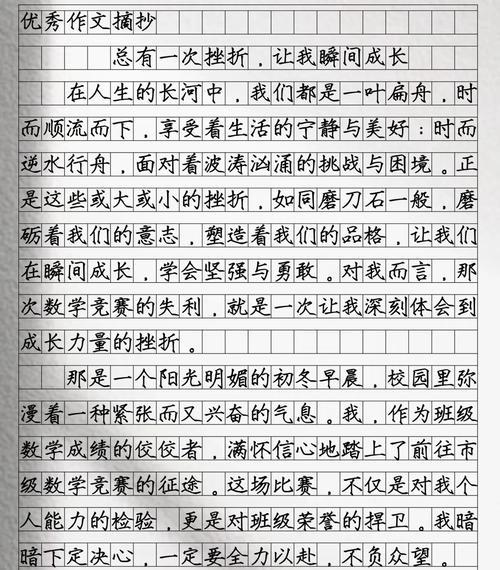 优秀作文摘抄
总有一次挫折，让我瞬间成长
在人生的长河中，我们都是一叶扁舟，时
而顺流而下，享受着生活的宁静与美好；时而
逆水行舟，面对着波涛汹涌的挑战与困境。正
是这些或大或小的挫折，如同磨刀石一般，磨
砺着我们的意志，塑造着我们的品格，让我们
在瞬间成长，学会坚强与勇敢。对我而言，那
次数学竞赛的失利，就是一次让我深刻体会到
成长力量的挫折。
那是一个阳光明媚的初冬早晨，校园里弥
漫着一种紧张而又兴奋的气息。我，作为班级
数学成绩的佼佼者，满怀信心地踏上了前往市
级数学竞赛的征途。这场比赛，不仅是对我个
人能力的检验，更是对班级荣誉的捍卫。我暗
暗下定决心，一定要全力以赴，不负众望。